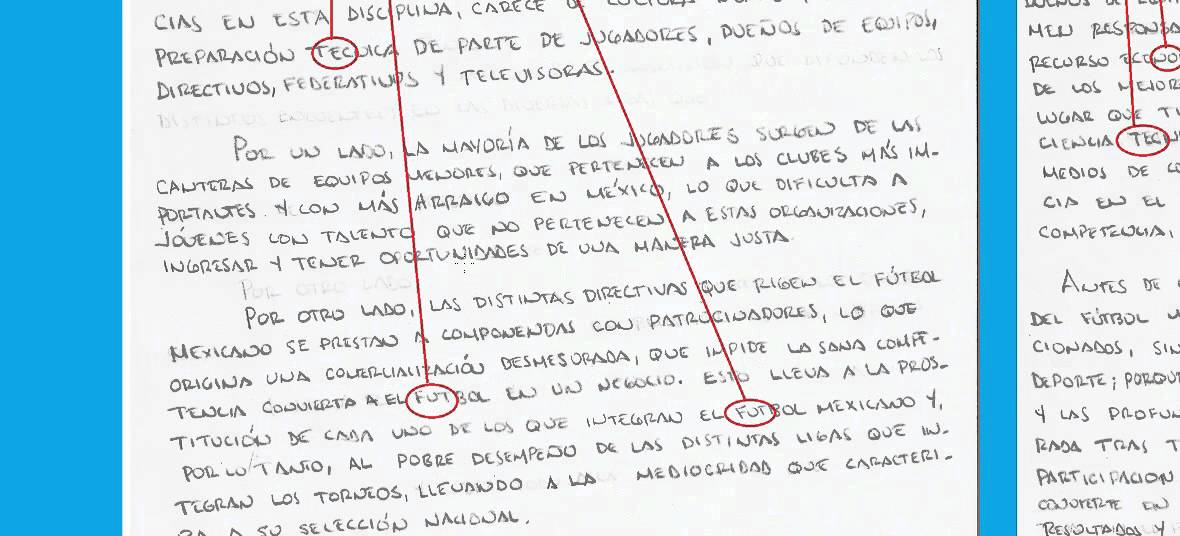 CIAS EN ESTA DISCIPLINA, CARECE DE
PREPARACIÓN TECNICA DE PARTE DE JUGADORES, DUEÑOS DE EQUIPOS,
DIRECTIVOS, FEDERATIVOS Y TELEVISORAS.
POR UN LADO, LA MAYORÍA DE LOS JUGADORES SURGEN DE LAS
CANTERAS DE EQUIPOS MENORES, QUE PERTENECEN A LOS CLUBES MÁS IM-
PORTANTES Y CON MÁS ARRAIGO EN MÉXICO, LO QUE DIFICULTA A
JÓVENES CON TALENTO QUE NO PERTENECEN A ESTAS ORGANIZACIONES,
INGRESAR Y TENER OPORTUNIDADES DE UNA MANERA JUSTA.
POR OTRO LADO
POR OTRO LADO, LAS DISTINTAS DIRECTIVAS QUE RIGEN EL FÚTBOL
MEXICANO SE PRESTAN A COMPONENDAS CON PATROCINADORES, LO QUE
ORIGINA UNA COMERCIALIZACIÓN DESMESURADA, QUE IMPIDE LA SANA COMPE-
TENCIA CONVIERTA A EL FUTBOL EN UN NEGOCIO. ESTO LLEVA A LA PROS-
TITUCIÓN DE CADA UNO DE LOS QUE INTEGRAN EL FUTBOL MEXICANO Y,
POR LO TANTO, AL POBRE DESEMPEÑO DE LAS DISTINTAS LIGAS QUE IN-
TEGRAN LOS TORNEOS, LLEVANDO A LA MEDIOCRIDAD QUE CARACTERI-
ZA A SU SELECCIÓN NACIONAL.
MEN RESPONSA
RECURSO ECONO
DE LOS MEJOR
LUGAR QUE TI
CIENCIA TECN
MEDIOS DE CO
CIA EN EL
COMPETENCIA,
ANTES DE
DEL FÚTBOL
CIONADOS, SIN
DEPORTE; PORQU
Y LAS PROFUN
RADA TRAS T
PARTICIPACION
CONVIERTE EN
RESULTADOS Y